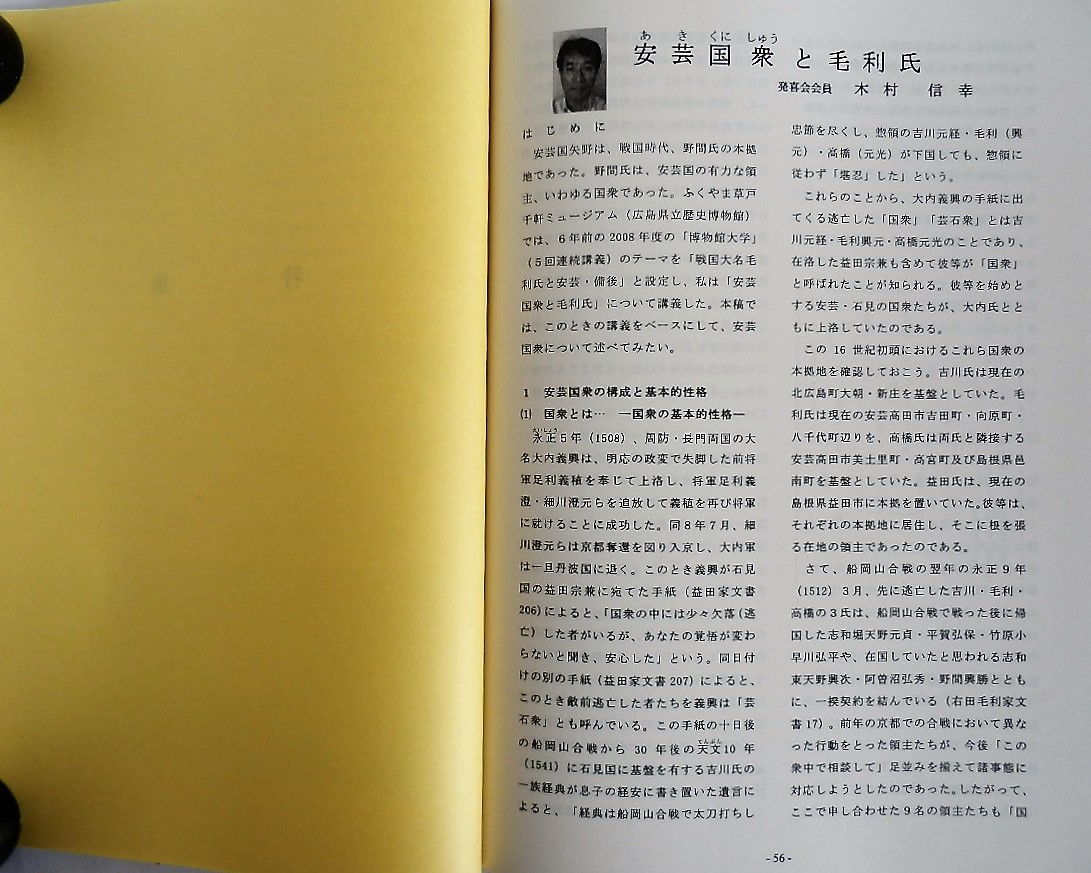 あ き くに しゅう
安芸国衆と毛利氏
発喜会会員 木村 信幸
はじめに
安芸国矢野は、戦国時代、野間氏の本拠
地であった。野間氏は、安芸国の有力な領
主、いわゆる国衆であった。ふくやま草戸
千軒ミュージアム（広島県立歴史博物館）
では、6年前の2008年度の「博物館大学」
（5回連続講義）のテーマを「戦国大名毛
利氏と安芸・備後」と設定し、私は「安芸
国衆と毛利氏」について講義した。本稿で
は、このときの講義をベースにして、安芸
国衆について述べてみたい。
1 安芸国衆の構成と基本的性格
⑴ 国衆とは… ―国衆の基本的性格―
えいしょう
永正5年（1508）、周防・長門両国の大
名大内義興は、明応の政変で失脚した前将
軍足利義稙を奉じて上洛し、将軍足利義
澄・細川澄元らを追放して義稙を再び将軍
に就けることに成功した。同8年7月、細
川澄元らは京都奪還を図り入京し、大内軍
は一旦丹波国に退く。このとき義興が石見
国の益田宗兼に宛てた手紙（益田家文書
206）によると、「国衆の中には少々欠落（逃
亡）した者がいるが、あなたの覚悟が変わ
らないと聞き、安心した」という。同日付
けの別の手紙（益田家文書207）によると、
このとき敵前逃亡した者たちを義興は「芸
石衆」とも呼んでいる。この手紙の十日後
てんぶん
の船岡山合戦から30年後の天文10年
（1541）に石見国に基盤を有する吉川氏の
一族経典が息子の経安に書き置いた遺言に
よると、「経典は船岡山合戦で太刀打ちし
忠節を尽くし、惣領の吉川元経・毛利（興
元）・高橋（元光）が下国しても、惣領に
従わず「堪忍」した」という。
これらのことから、大内義興の手紙に出
てくる逃亡した「国衆」「芸石衆」とは吉
川元経・毛利興元・高橋元光のことであり、
在洛した益田宗兼も含めて彼等が「国衆」
と呼ばれたことが知られる。彼等を始めと
する安芸・石見の国衆たちが、大内氏とと
もに上洛していたのである。
この16世紀初頭におけるこれら国衆の
本拠地を確認しておこう。吉川氏は現在の
北広島町大朝・新庄を基盤としていた。毛
利氏は現在の安芸高田市吉田町・向原町・
八千代町辺りを、高橋氏は両氏と隣接する
安芸高田市美土里町・高宮町及び島根県邑
南町を基盤としていた。益田氏は、現在の
島根県益田市に本拠を置いていた。彼等は、
それぞれの本拠地に居住し、そこに根を張
る在地の領主であったのである。
さて、船岡山合戦の翌年の永正9年
（1512）3月、先に逃亡した吉川・毛利・
高橋の3氏は、船岡山合戦で戦った後に帰
国した志和堀天野元貞・平賀弘保・竹原小
早川弘平や、在国していたと思われる志和
東天野興次・阿曽沼弘秀・野間興勝ととも
に、一揆契約を結んでいる（右田毛利家文
書17）。前年の京都での合戦において異な
った行動をとった領主たちが、今後「この
衆中で相談して」足並みを揃えて諸事態に
対応しようとしたのであった。したがって、
ここで申し合わせた9名の領主たちも「国
- 56 -